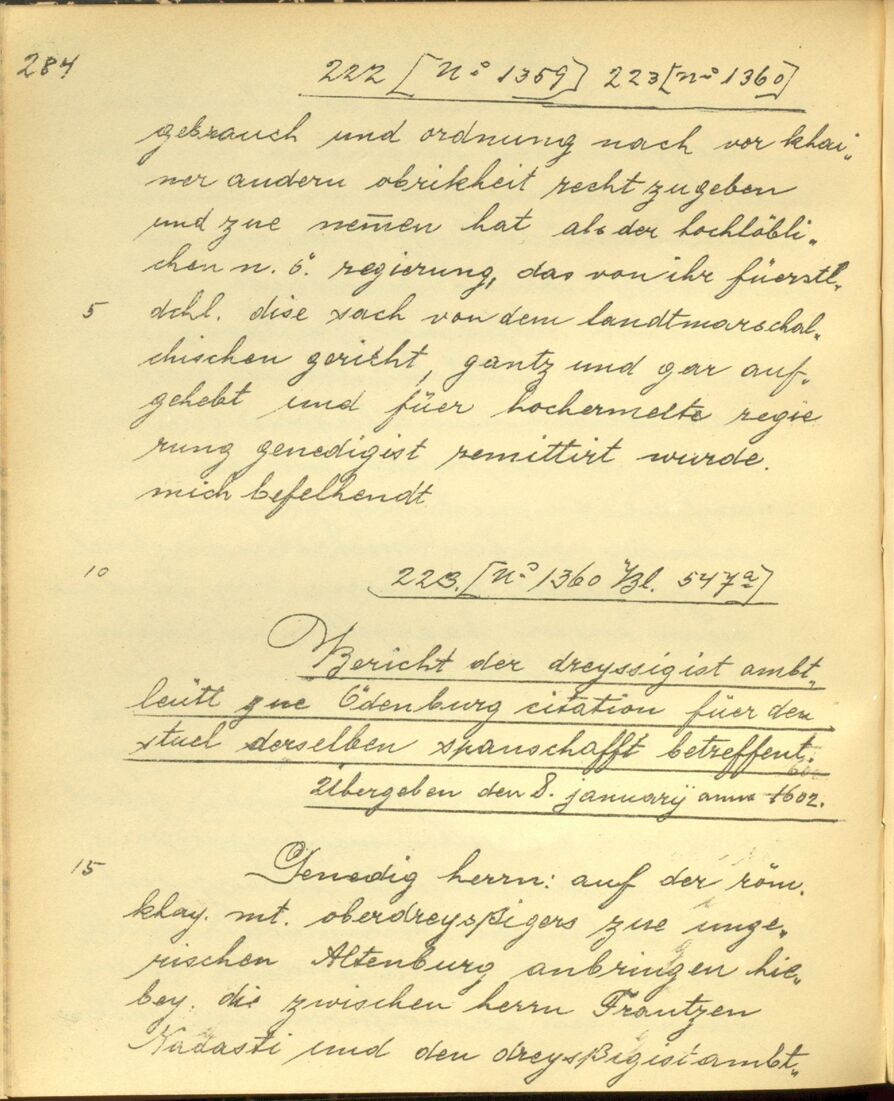 284
222 [No 1359] 223 [No 1360]
gebrauch und ordnung nach vor khai„
ner andern obrikheit recht zu geben
und zue nem̅en hat als der hochlöbli„
chen n. ö. regierung, das von ihr füerstl„
5 dchl. dise sach von dem landtmarschal„
chischen gericht, gantz und gar auf„
gehebt und füer hochermelte regie
rung genedigist remittirt wurde.
mich befelhendt
10 223. [No 1360 Bl. 547a]
Bericht der dreyssigist ambt„
leütt zue Ödenburg citation füer den
stuel derselben spanschafft betreffent.
Übergeben den 8. january anno 1602.
15 Genedig herrn: auf der röm.
khay. mt. oberdreysßigers zue unge„
rischen Altenburg anbringen hie„
bey. die zwischen herrn Frantzen
Nadasti und den dreysßigistambt„